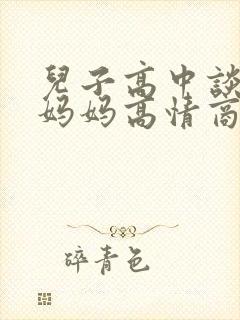 兒子高中談
妈妈高情商
碎青色